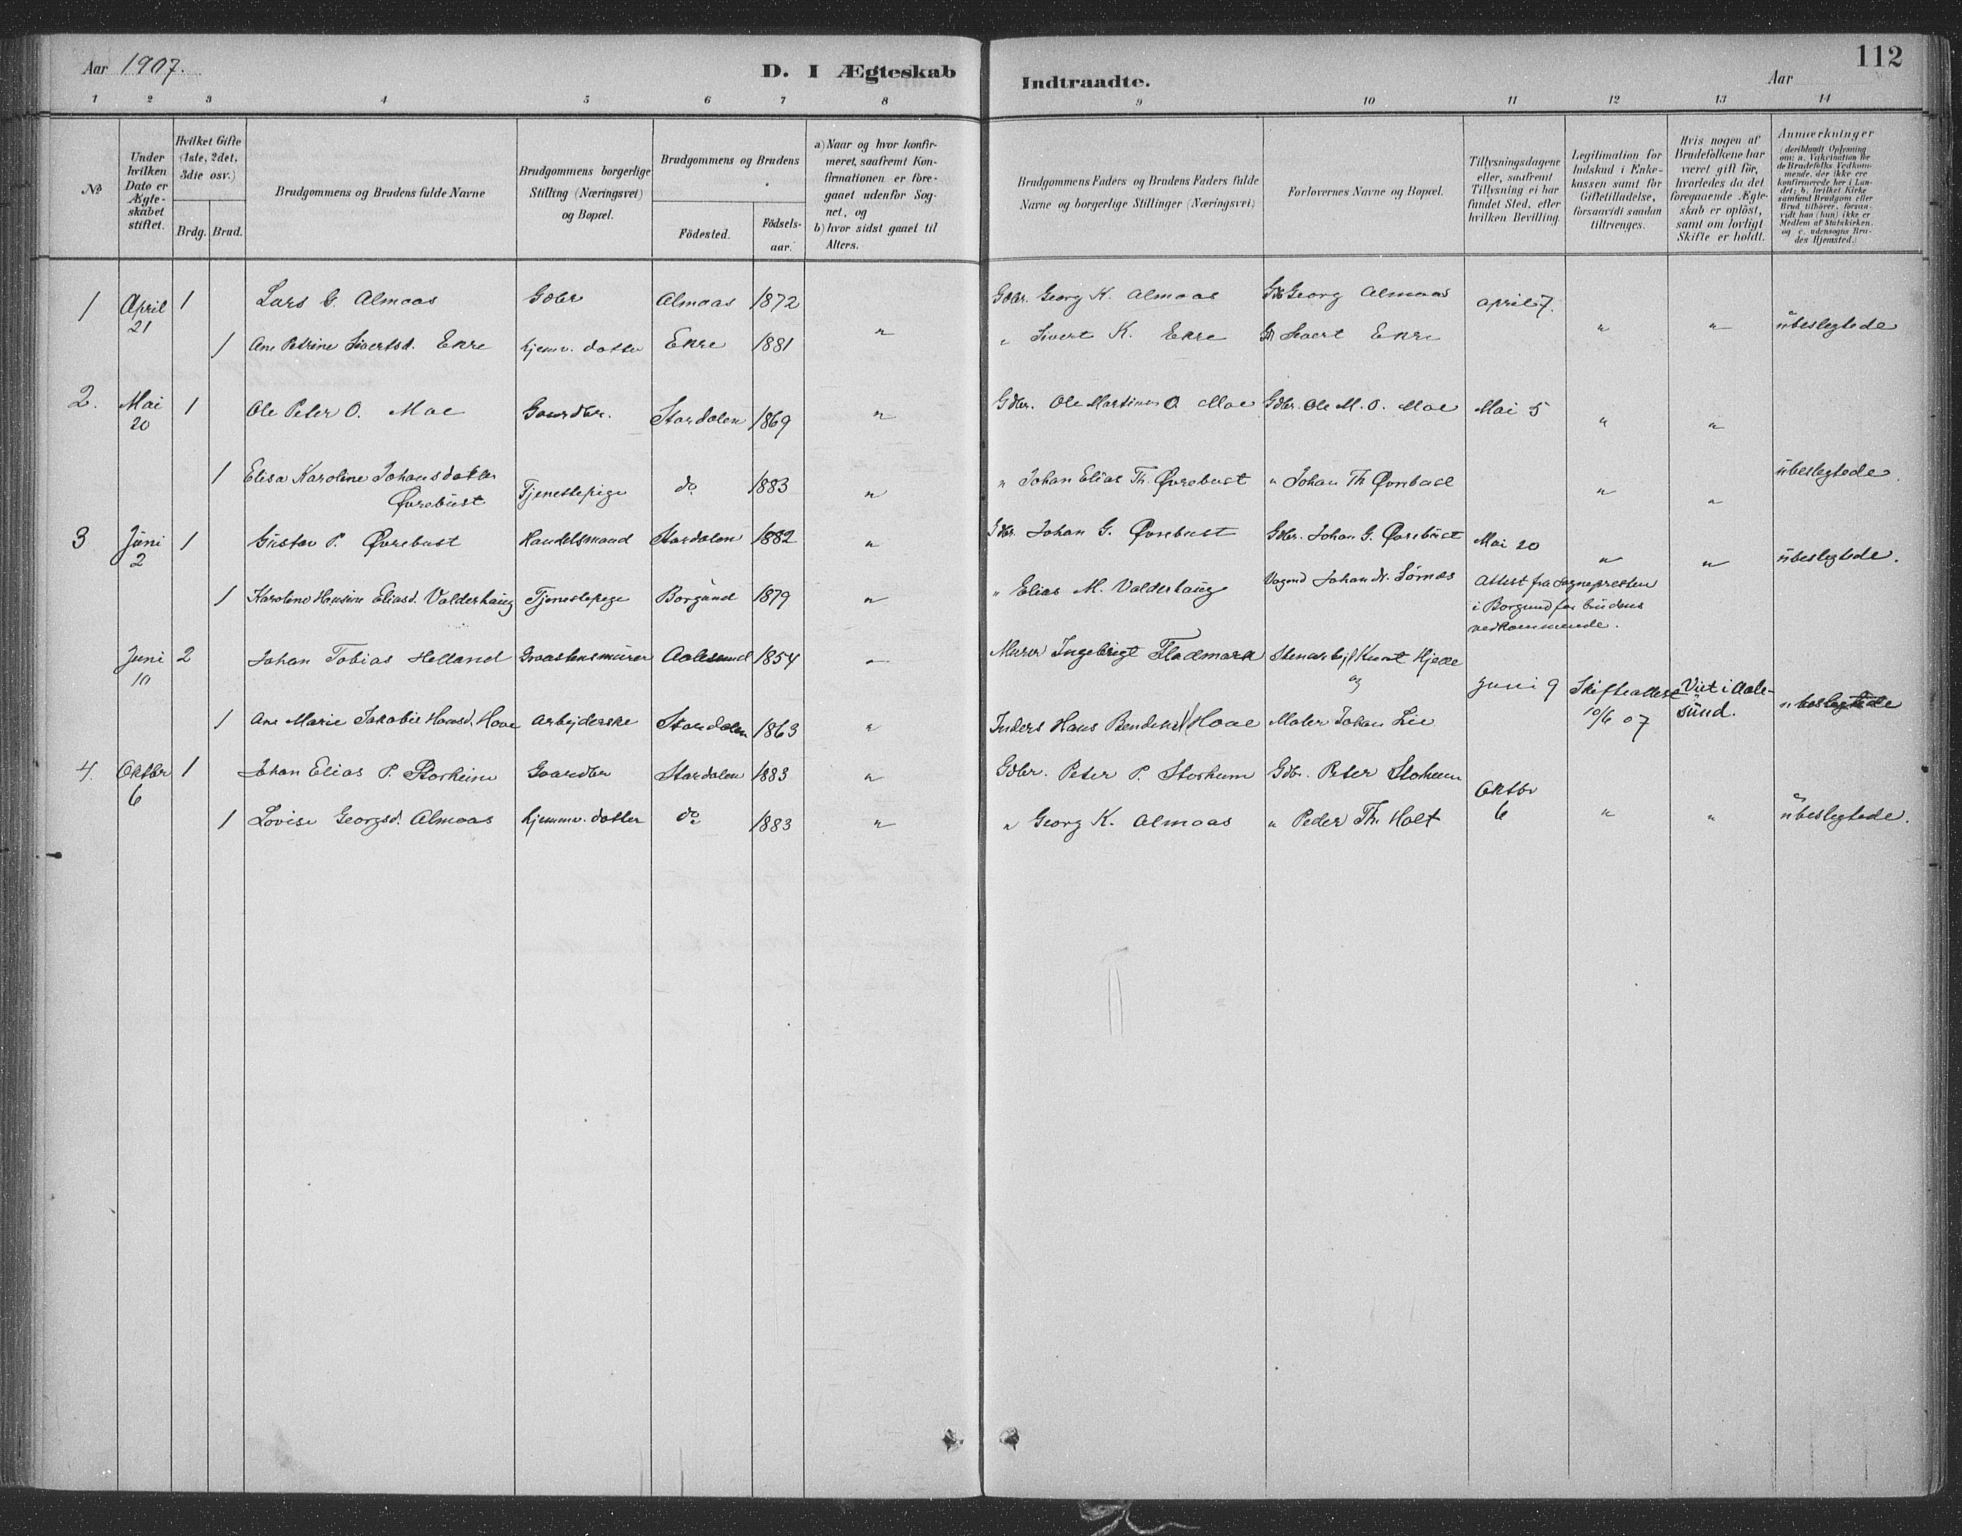 Aar 1907.
D. I Ægteskab
Indtraadte.
Aar
112
1 2 3 4 5 6 7 8 9 10 11 12 13 14
No
Under hvilken Dato er Ægteskabet stiftet.
Hvilket Gifte (1ste, 2det, 3die osv.)
Brdg. Brud.
Brudgommens og Brudens fulde Navne
Brudgommens borgerlige Stilling (Næringsvei) og Bopæl.
Brudgommens og Brudens
Födested.
Födsels-aar.
a) Naar og hvor konfirmeret, saafremt Konfirmationen er foregaaet udenfor Sognet, og
b) hvor sidst gaaet til Alters.
Brudgommens Faders og Brudens Faders fulde Navne og borgerlige Stillinger (Næringsvei)
Forlovernes Navne og Bopæl.
Tillysningsdagene eller, saafremt Tillysning ei har fundet Sted, efter hvilken Bevilling.
Legitimation for Indskud i Enkekassen samt for Giftetilladelse, forsaavidt saadan tiltrænges.
Hvis nogen af Brudefolkene har været gift før, hvorledes da det foregaaende Ægteskab er oplöst, samt om lovligt Skifte er holdt.
Anmærkninger (deriblandt Oplysning om: a. Vakcination for de Brudefolks Vedkommende, der ikke ere konfirmerede her i Landet; b. hvilket Kirkesamfund Brudgom eller Brud tilhörer, forsaavidt han (hun) ikke er Medlem af Statskirken, og c. udensogns Brudes Hjemsted.)
1 April 21 1 Lars G. Almaas Gdbr Almaas 1872 " Gdbr. Georg K. Almaas Georg Almaas April 7. " " ubeslegtede
1 Ane Petrine Sivertsd. Ekre hjemv. datter Ekre 1881 " Sivert K. Ekre Sivert Ekre
2. Mai 20 1 Ole Peter O. Moe Gaardbr. Stordalen 1869 " Gdbr. Ole Martinus O. Moe Gdbr. Ole M. O. Moe Mai 5 " "
1 Elisa Karoline Johansdatter Øvrebust Tjenestepige do 1883 " " Johan Elias Th. Øvrebust " Johan Th. Øvrebust " " ubeslegtede.
3 Juni 2 1 Gustav P. Øvrebust Handelsmand Stordalen 1882 " Gdbr. Johan G. Øvrebust Gdbr. Johan G. Øvrebust Mai 20 " " ubeslegtede.
1 Karoline Hansine Eliasd. Valderhaug Tjenestepige Borgund 1879 " " Elias M. Valderhaug Johan Sørnes Attest fra Sognepresten
i Borgund for brudens
vedkommende.
Juni 10 2 Johan Tobias Helland Graastensmurer Aalesund 1854 – Murer Ingebrigt Fladmark Stenarbej. Knut Hjelle
og Juni 9 Skifteattest 10/6 07 Viet i Aalesund. ubeslegtede
1 Ane Marie Jakobie Hansd. Hove Arbejderske Stordalen 1863 " Inders Hans Hove Maler Johan Lie
4. Oktbr 6 1 Johan Elias P. Storheim Gaardbr Stordalen 1883 " Gdbr. Peter P. Storheim Gdbr. Peter Storheim Oktbr 6 " " ubeslegtede.
1 Lovise Georgsd. Almaas hjemmv. datter do 1883 " " Georg K. Almaas " Peder Th. Holt